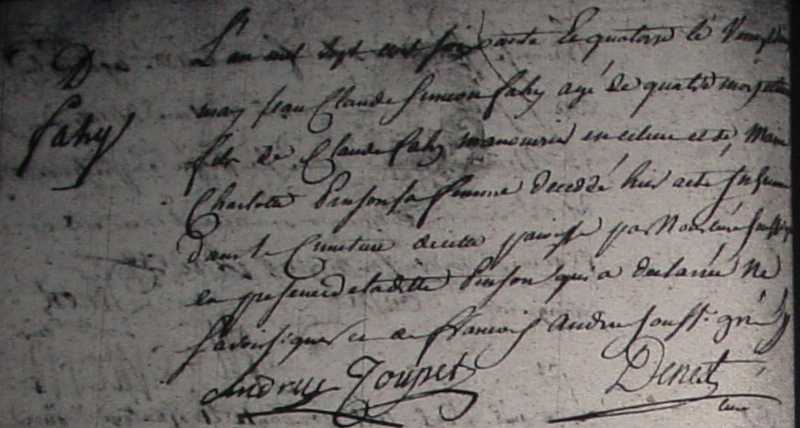 D
fahy
L'an mil sept cent soixante et quatorze le vingt
may jean Claude Simeon fahy agé de quatre mois
fils de Claude fahy manouvrier en ce lieu et de Marie
Charlotte Pinson sa femme decedé hier a été inhumé
dans le Cimetiere de cette paroisse par Nous curé soussigné
en presence de la ditte Pinson qui a declarée ne
savoir signer et de francois Andru soussigné
andru Toupet Denest
curé